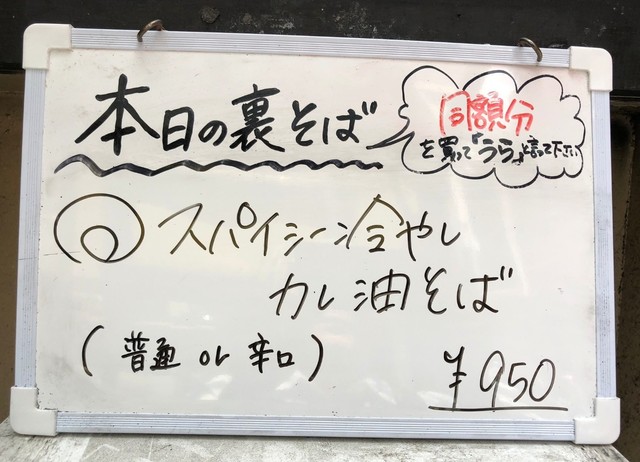 本日の裏そば
同額分
を買って「うら」と言って下さい
◎スパイシー冷やし
カレー油そば
(普通 or 辛口)
¥950